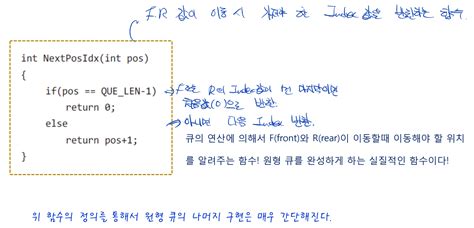 F,R 값이 이동 시 위치해야 할 Index 값을 반환하는 함수.
int NextPosIdx(int pos)
{
if(pos == QUE_LEN-1)
return 0;
else
return pos+1;
}
F또는 R의 Index값이 맨 마지막이면
처음값(0)으로 반환
아니면 다음 Index 반환.
큐의 연산에 의해서 F(front)와 R(rear)이 이동할때 이동해야 할 위치
를 알려주는 함수! 원형 큐를 완성하게 하는 실질적인 함수이다!
위 함수의 정의를 통해서 원형 큐의 나머지 구현은 매우 간단해진다.